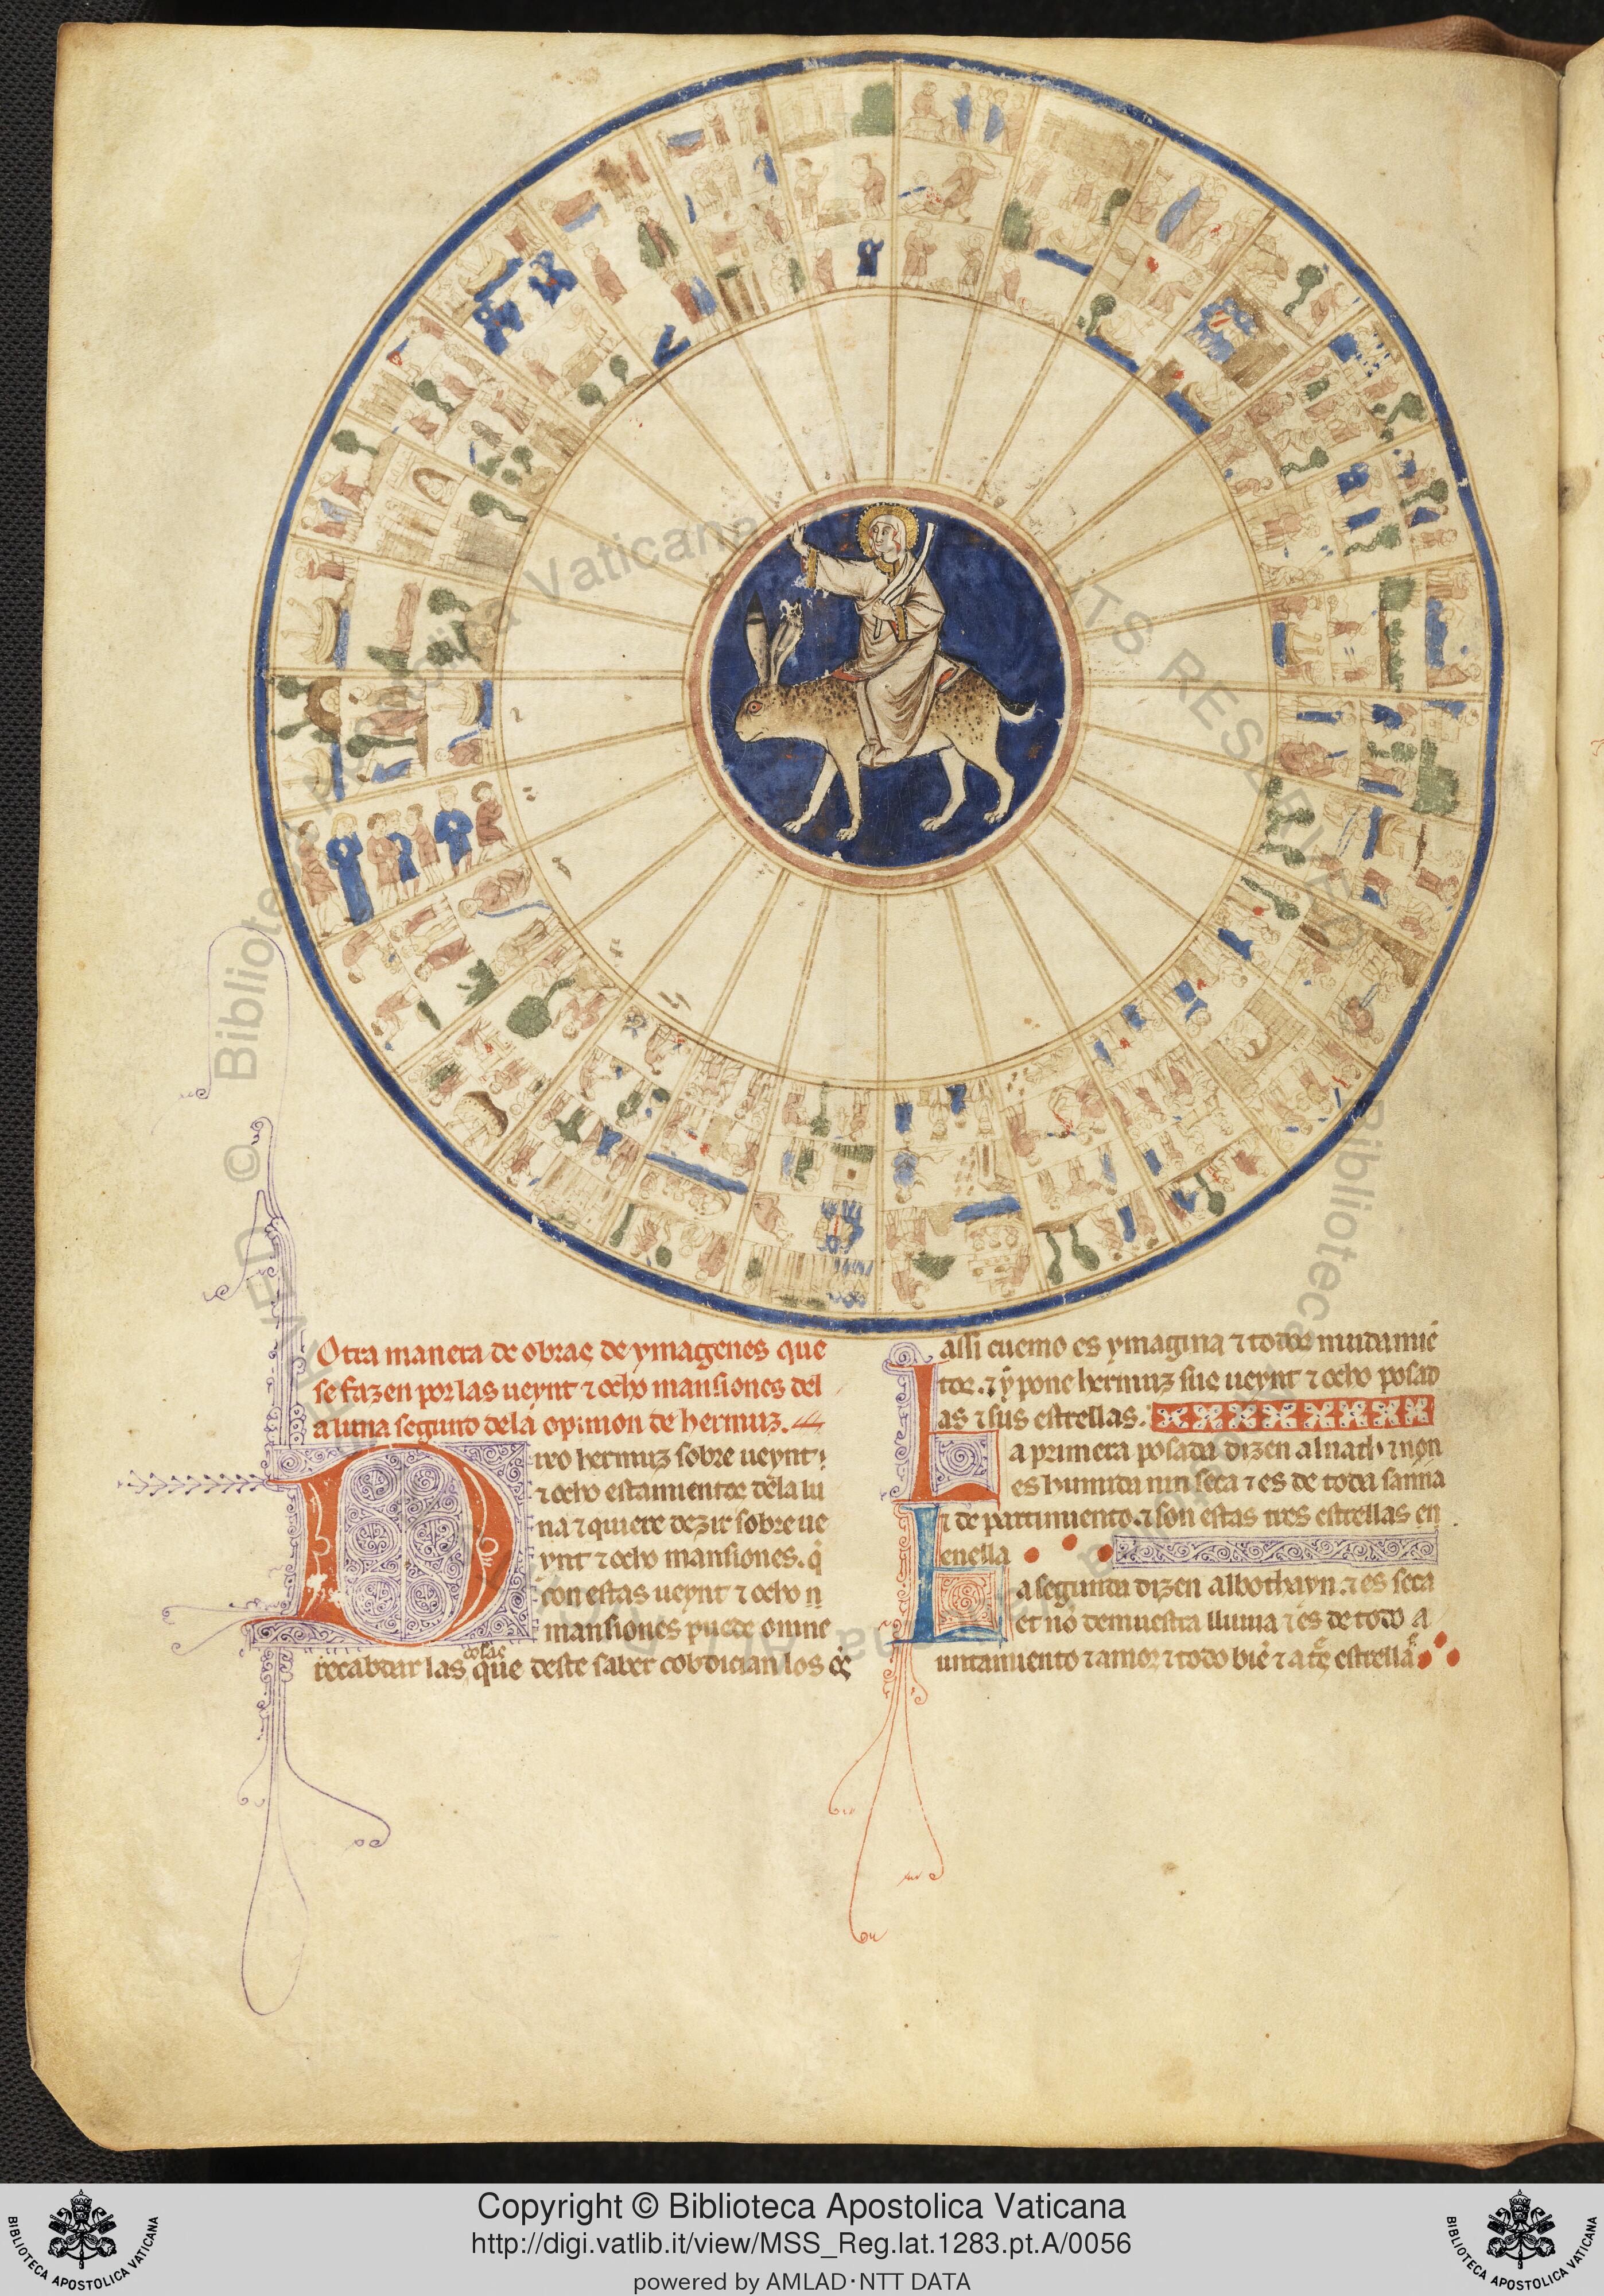 Otra manera de obras de ymagenes que
se fazen por las ueynt ⁊ ocho mansiones del
a luna segunt de la opinion de hermuz.
Dixo hermuz sobre ueynt
⁊ ocho estamientos dela lu
na ⁊ quiere dezir sobre ue
ynt ⁊ ocho mansiones. q̇
con estas ueynt ⁊ ocho
mansiones puede omne
recabdar las cosas que deste saber cobdician los
assi cuemo es ymagina ⁊ todos mudamiē
tos. ⁊ ẏ pone hermuz sus ueynt ⁊ ocho posad
as ⁊ sus estrellas.
La primera posada dizen alnath ⁊ non
es humida nin seca ⁊ es de toda sanna
⁊ de partimiento. ⁊ son estas tres estrellas en
enella
La segunda dizen albothayn. ⁊ es seca
et nō demuestra lluuia ⁊ es de todo a
untamiento ⁊ amor ⁊ todo biē ⁊ estrella
© Biblioteca Apostolica Vaticana
RIGHTS RESERVED
Copyright © Biblioteca Apostolica Vaticana
http://digi.vatlib.it/view/MSS_Reg.lat.1283.pt.A/0056
powered by AMLAD·NTT DATA
BIBLIOTECA APOSTOLICA VATICANA
BIBLIOTECA APOSTOLICA VATICANA